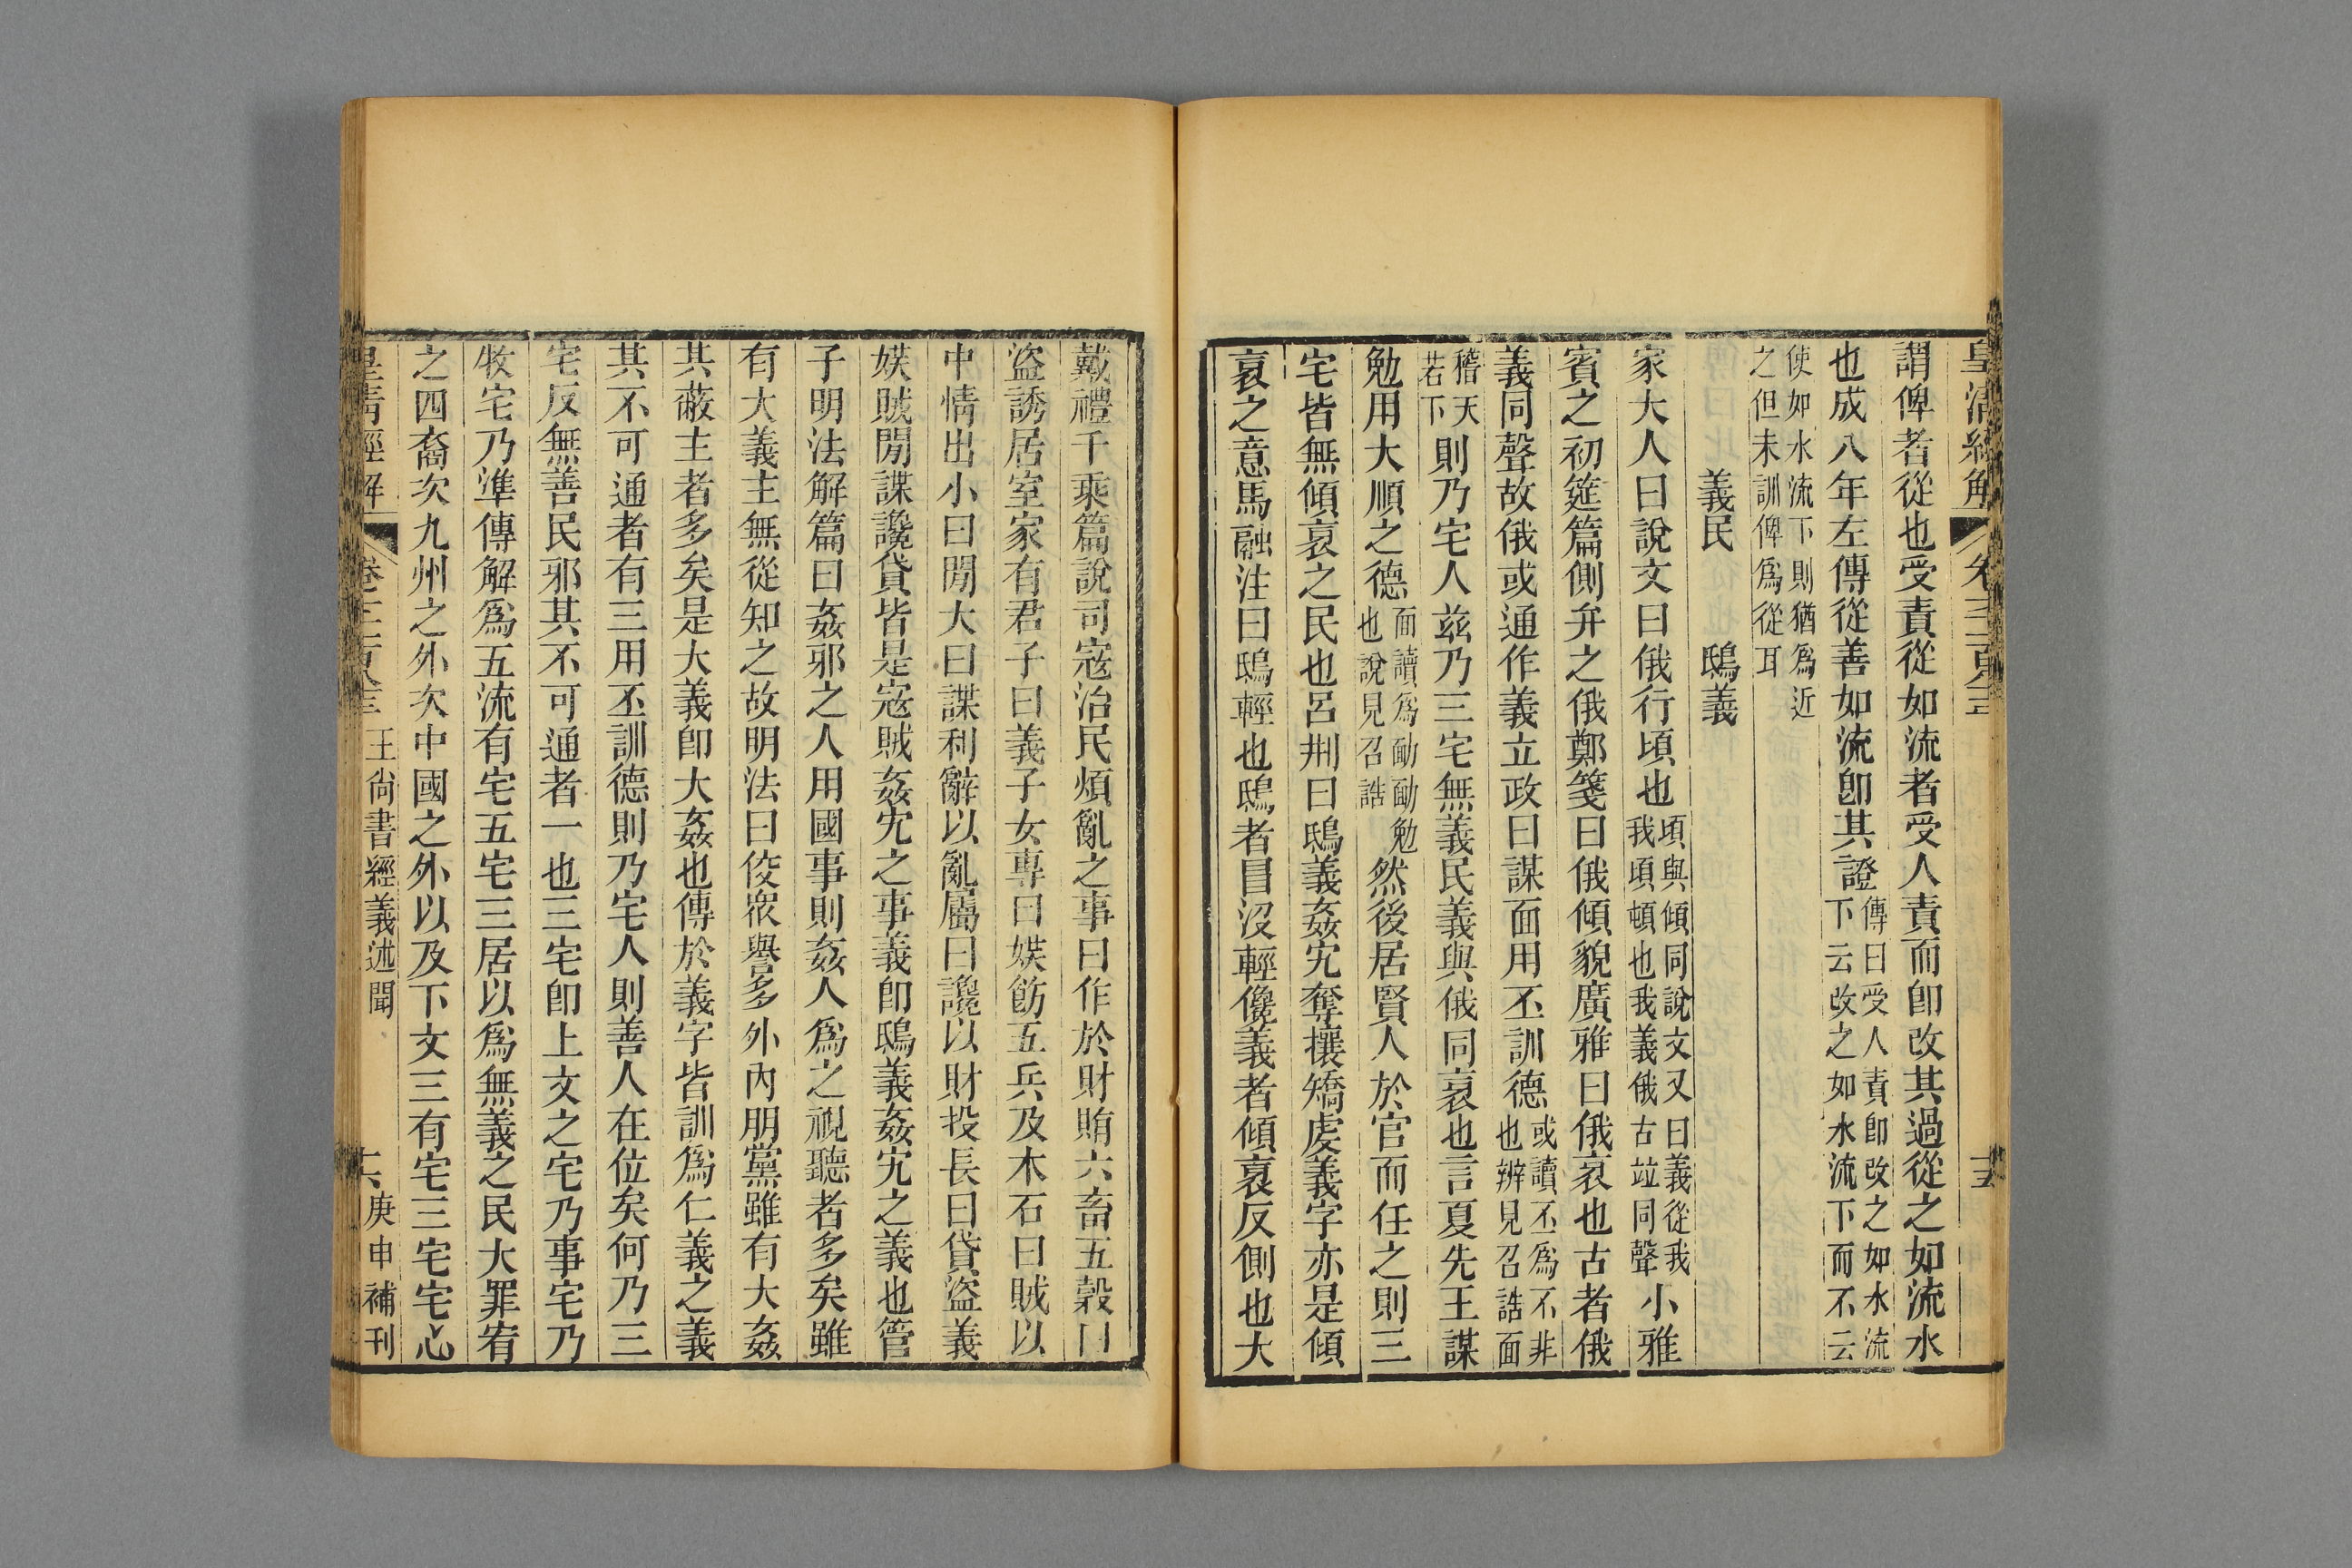 皇清經解 卷千二百八十三 十五
謂俾者從也受責從如流者受人責而卽改其過從之如流水
也成八年左傳從善如流卽其證傳曰受人責卽改之如水流下云改之如水流下而不云
使如水流下則猶爲近之但未訓俾爲從耳
義民 鴟義
家大人曰說文曰俄行頃也頃與傾同說文又曰義從我我頃頓也我義俄古竝同聲小雅
賓之初筵篇側弁之俄鄭箋曰俄傾貌廣雅曰俄衺也古者俄
義同聲故俄或通作義立政曰謀面用丕訓德或讀丕爲不非也辨見召誥面
稽天若下則乃宅人兹乃三宅無義民義與俄同衺也言夏先王謀
勉用大順之德面讀爲勔勔勉也說見召誥然後居賢人於官而任之則三
宅皆無傾衺之民也呂刑曰鴟義姦宄奪攘矯虔義字亦是傾
衺之意馬融注曰鴟輕也鴟者冒沒輕儳義者傾衺反側也大
戴禮千乘篇說司寇治民煩亂之事曰作於財賄六畜五穀曰
盜誘居室家有君子曰義子女專曰媖飭五兵及木石曰賊以
中情出小曰閒大曰諜利辭以亂屬曰讒以財投長曰貸盜義
媖賊閒諜讒貸皆是寇賊姦宄之事義卽鴟義姦宄之義也管
子明法解篇曰姦邪之人用國事則姦人爲之視聽者多矣雖
有大義主無從知之故明法曰佼衆譽多外內朋黨雖有大姦
其蔽主者多矣是大義卽大姦也傳於義字皆訓爲仁義之義
其不可通者有三用丕訓德則乃宅人則善人在位矣何乃三
宅反無善民邪其不可通者一也三宅卽上文之宅乃事宅乃
牧宅乃準傳解爲五流有宅五宅三居以爲無義之民大罪宥
之四裔次九州之外次中國之外以及下文三有宅三宅宅心
皇清經解 王尙書經義述聞 十六 庚申補刊